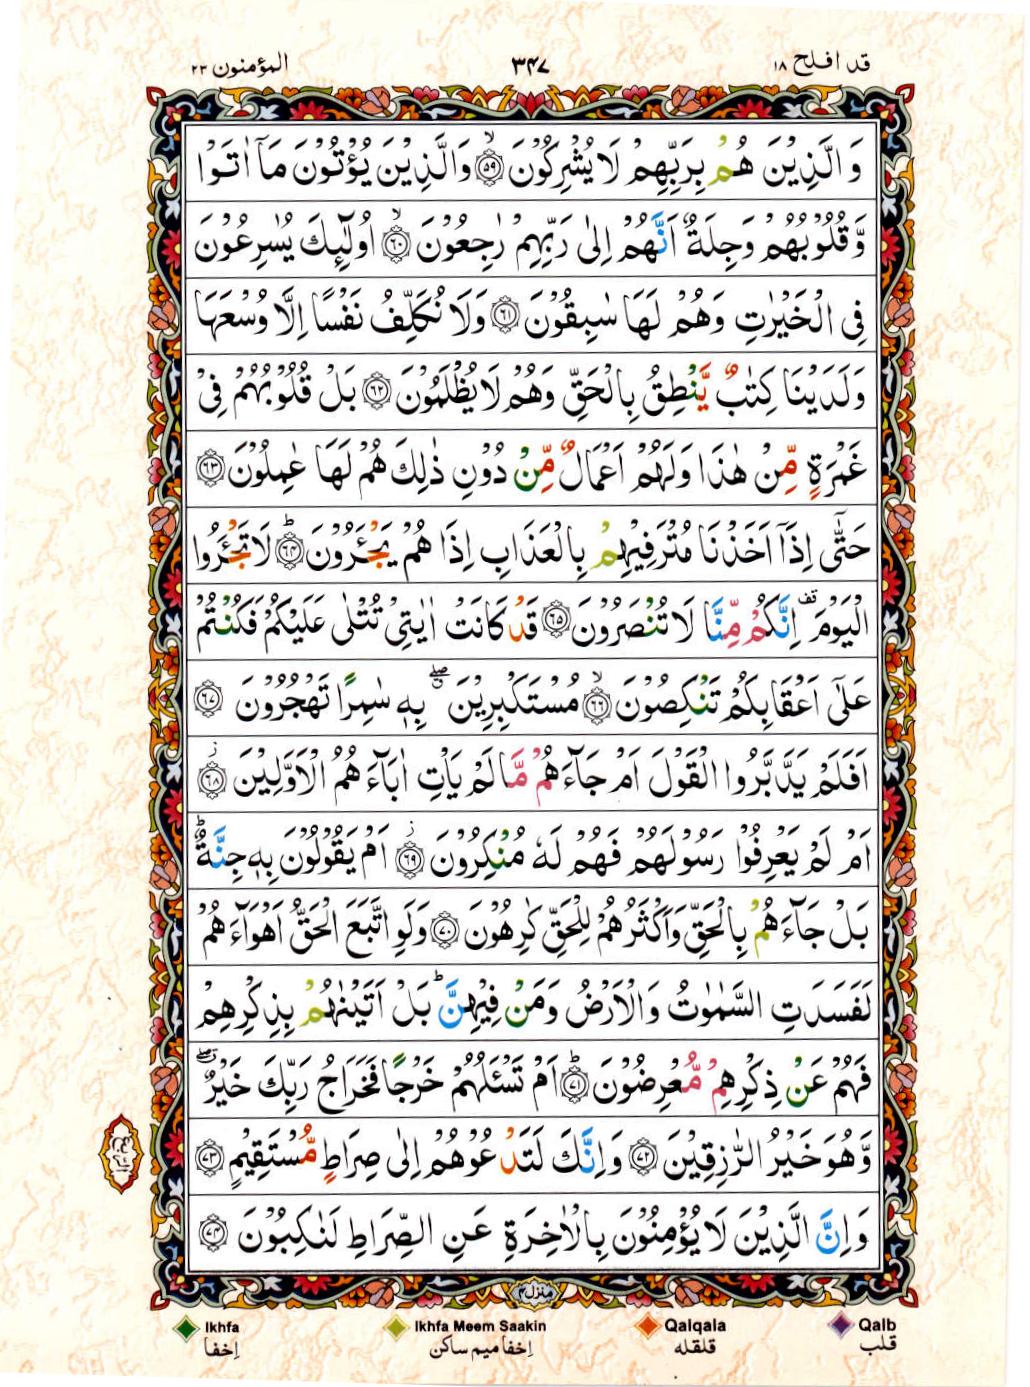 قد افلح ۱۸
۳۴۷
المؤمنون ۲۳
وَ الَّذِیْنَ هُمْ بِرَبِّهِمْ لَا یُشْرِكُوْنَۙ۝۵۹ وَ الَّذِیْنَ یُؤْتُوْنَ مَاۤ اٰتَوْا
وَّ قُلُوْبُهُمْ وَجِلَةٌ اَنَّهُمْ اِلٰى رَبِّهِمْ رٰجِعُوْنَۙ۝۶۰ اُولٰٓىِٕكَ یُسٰرِعُوْنَ
فِی الْخَیْرٰتِ وَ هُمْ لَهَا سٰبِقُوْنَ۝۶۱ وَ لَا نُكَلِّفُ نَفْسًا اِلَّا وُسْعَهَا
وَ لَدَیْنَا كِتٰبٌ یَّنْطِقُ بِالْحَقِّ وَ هُمْ لَا یُظْلَمُوْنَ۝۶۲ بَلْ قُلُوْبُهُمْ فِیْ
غَمْرَةٍ مِّنْ هٰذَا وَ لَهُمْ اَعْمَالٌ مِّنْ دُوْنِ ذٰلِكَ هُمْ لَهَا عٰمِلُوْنَ۝۶۳
حَتّٰۤى اِذَاۤ اَخَذْنَا مُتْرَفِیْهِمْ بِالْعَذَابِ اِذَا هُمْ یَجْـَٔرُوْنَؕ۝۶۴ لَا تَجْـَٔرُوا
الْیَوْمَ قف اِنَّكُمْ مِّنَّا لَا تُنْصَرُوْنَ۝۶۵ قَدْ كَانَتْ اٰیٰتِیْ تُتْلٰى عَلَیْكُمْ فَكُنْتُمْ
عَلٰۤى اَعْقَابِكُمْ تَنْكِصُوْنَۙ۝۶۶ مُسْتَكْبِرِیْنَ ۖۗ بِهٖ سٰمِرًا تَهْجُرُوْنَ۝۶۷
اَفَلَمْ یَدَّبَّرُوا الْقَوْلَ اَمْ جَآءَهُمْ مَّا لَمْ یَاْتِ اٰبَآءَهُمُ الْاَوَّلِیْنَ٘۝۶۸
اَمْ لَمْ یَعْرِفُوْا رَسُوْلَهُمْ فَهُمْ لَهٗ مُنْكِرُوْنَ٘۝۶۹ اَمْ یَقُوْلُوْنَ بِهٖ جِنَّةٌؕ
بَلْ جَآءَهُمْ بِالْحَقِّ وَ اَكْثَرُهُمْ لِلْحَقِّ كٰرِهُوْنَ۝۷۰ وَ لَوِ اتَّبَعَ الْحَقُّ اَهْوَآءَهُمْ
لَفَسَدَتِ السَّمٰوٰتُ وَ الْاَرْضُ وَ مَنْ فِیْهِنَّؕ بَلْ اَتَیْنٰهُمْ بِذِكْرِهِمْ
فَهُمْ عَنْ ذِكْرِهِمْ مُّعْرِضُوْنَؕ۝۷۱ اَمْ تَسْـَٔلُهُمْ خَرْجًا فَخَرَاجُ رَبِّكَ خَیْرٌ ۖۗ
وَّ هُوَ خَیْرُ الرّٰزِقِیْنَ۝۷۲ وَ اِنَّكَ لَتَدْعُوْهُمْ اِلٰى صِرَاطٍ مُّسْتَقِیْمٍ۝۷۳
الربع
وَ اِنَّ الَّذِیْنَ لَا یُؤْمِنُوْنَ بِالْاٰخِرَةِ عَنِ الصِّرَاطِ لَنٰكِبُوْنَ۝۷۴
منزل۴
Ikhfa Ikhfa Meem Saakin Qalqala Qalb
إخفا إخفا میم ساکن قلقله قلب